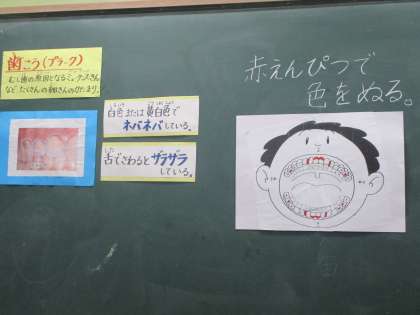 歯こう(プラーク)
むし歯の原因となるミュータンスきん
など、たくさんの細きんのかたまり。
白色または黄白色で
ネバネバしている。
舌でさわるとザラザラ
している。
赤えんぴつで
色をぬる。